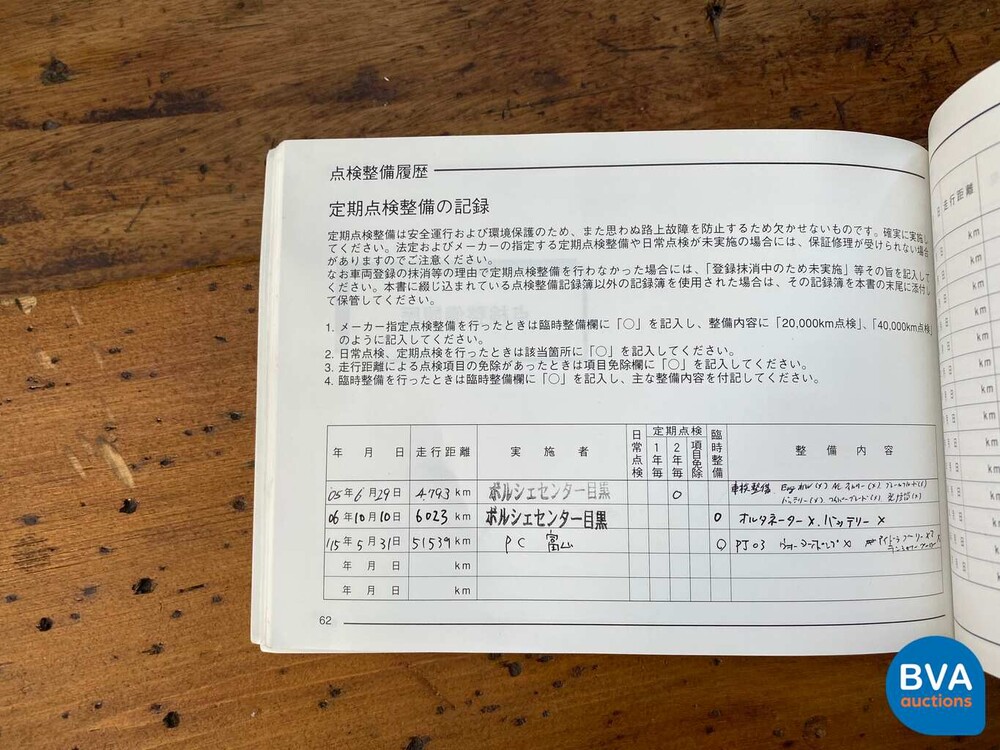 点検整備履歴
定期点検整備の記録
定期点検整備は安全運行および環境保護のため、また思わぬ路上故障を防止するため欠かせないものです。確実に実施し
てください。法定およびメーカーの指定する定期点検整備や日常点検が未実施の場合には、保証修理が受けられない場合
がありますのでご注意ください。
なお車両登録の抹消等の理由で定期点検整備を行わなかった場合には、「登録抹消中のため未実施」等その旨を記入して
ください。本書に綴じ込まれている点検整備記録簿以外の記録簿を使用された場合は、その記録簿を本書の末尾に添付し
て保管してください。
1. メーカー指定点検整備を行ったときは臨時整備欄に「○」を記入し、整備内容に「20,000km点検」、「40,000km点検」
のように記入してください。
2. 日常点検、定期点検を行ったときは該当箇所に「○」を記入してください。
3. 走行距離による点検項目の免除があったときは項目免除欄に「○」を記入してください。
4. 臨時整備を行ったときは臨時整備欄に「○」を記入し、主な整備内容を付記してください。
年 月 日 走行距離 実施者 日常点検 定期点検 1年毎 2年毎 項目免除 臨時整備 整備内容
'05年6月29日 4793 km ポルシェセンター目黒 ○ 車検整備
バッテリー(×)
06年10月10日 6023 km ポルシェセンター目黒 ○ オルタネーター×. バッテリー×
'15年5月31日 51539 km PC 富山 ○ PJ03 ウォーターポンプ×
年 月 日 km
年 月 日 km
62
走行距離
km
km
km
km
km
km
km
BVA
auctions